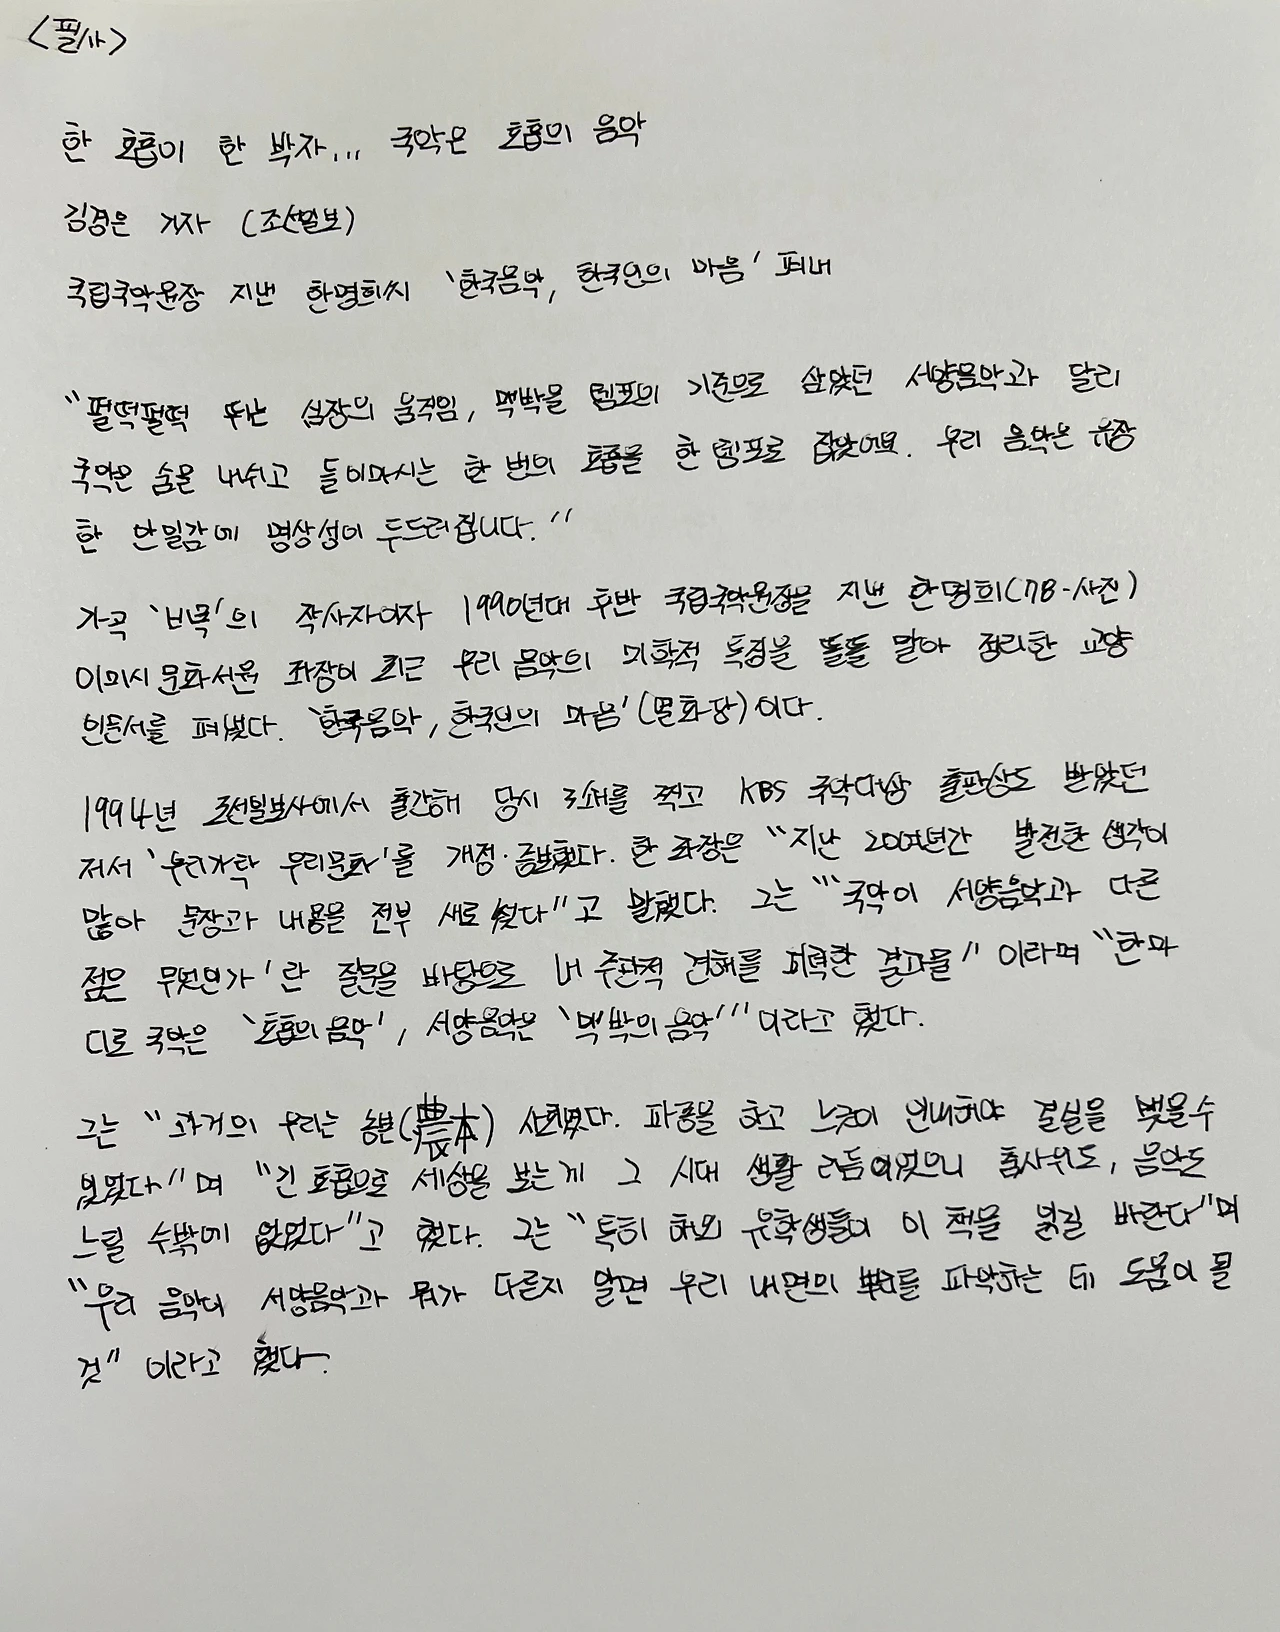 <필사>
한 호흡이 한 박자... 국악은 호흡의 음악
김경은 기자 (조선일보)
국립국악원장 지낸 한명희씨 '한국음악, 한국인의 마음' 펴내
"펄떡펄떡 뛰는 심장의 움직임, 맥박을 템포의 기준으로 삼았던 서양음악과 달리
국악은 숨을 내쉬고 들이마시는 한 번의 호흡을 한 템포로 잡았어요. 우리 음악은 유장
한 안일감에 명상성이 두드러집니다."
가곡 '비목'의 작사자이자 1990년대 후반 국립국악원장을 지낸 한명희(78·사진)
이미시문화서원 좌장이 최근 우리 음악의 미학적 특징을 똘똘 말아 정리한 교양
인문서를 펴냈다. '한국음악, 한국인의 마음'(열화당)이다.
1994년 조선일보사에서 출간해 당시 3쇄를 찍고 KBS 국악대상 출판상도 받았던
저서 '우리가락 우리문화'를 개정·증보했다. 한 좌장은 "지난 20여년간 발전한 생각이
많아 문장과 내용을 전부 새로 썼다"고 말했다. 그는 "'국악이 서양음악과 다른
점은 무엇인가'란 질문을 바탕으로 내 주관적 견해를 피력한 결과물"이라며 "한마
디로 국악은 '호흡의 음악', 서양음악은 '맥박의 음악'"이라고 했다.
그는 "과거의 우리는 농본(農本) 사회였다. 파종을 하고 느긋이 인내해야 결실을 맺을 수
있었다"며 "긴 호흡으로 세상을 보는 게 그 시대 생활 리듬이었으니 춤사위도, 음악도
느릴 수밖에 없었다"고 했다. 그는 "특히 해외 유학생들이 이 책을 읽길 바란다"며
"우리 음악이 서양음악과 뭐가 다른지 알면 우리 내면의 뿌리를 파악하는 데 도움이 될
것"이라고 했다.